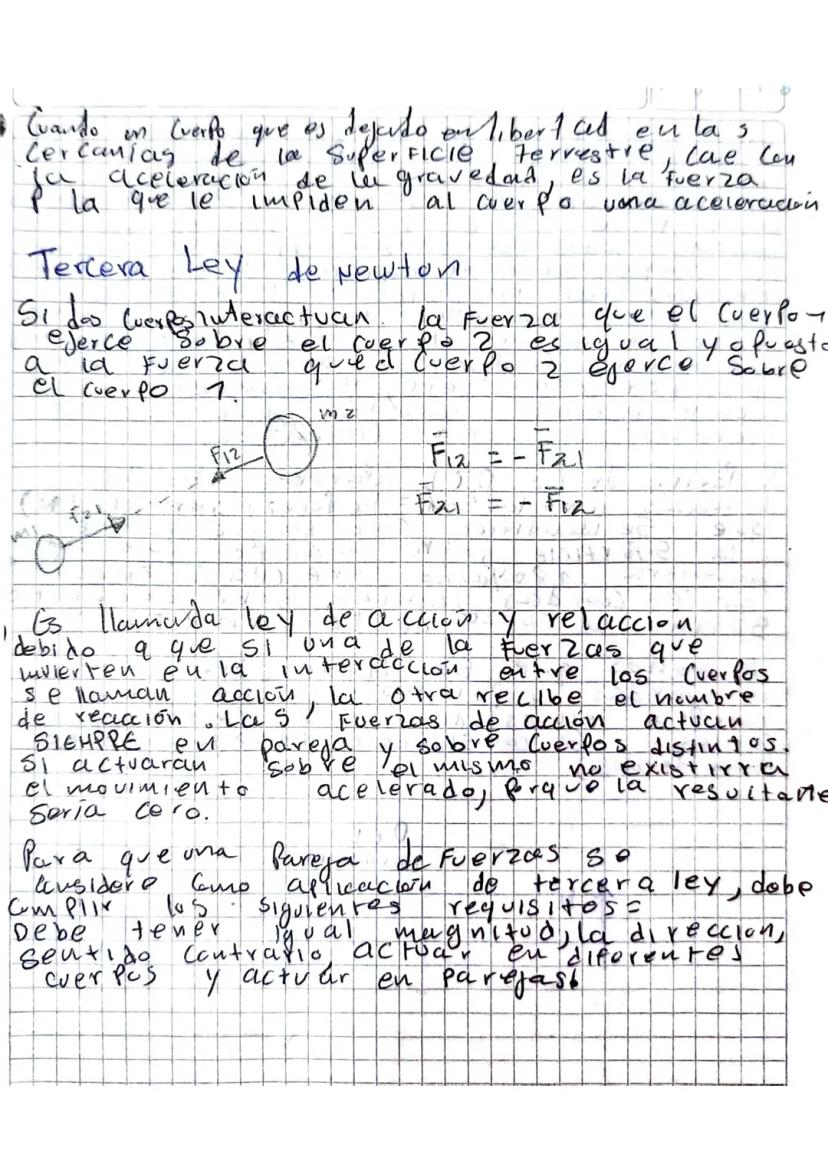 Cuando un cuerpo que es dejado en libertad en la s
cercanias de la superficie terrestre, cae con
la aceleración de la gravedad, es la fuerza
P la que le impiden al cuerpo una aceleración
Tercera Ley de Newton
Si dos cuerpos interactuan la fuerza que el cuerpo 1
ejerce sobre el cuerpo 2 es igual y opuesta
a la fuerza que el cuerpo 2 ejerce sobre
el cuerpo 1.
m2
F12
F21
m1
F12 = - F21
F21 = - F12
Es llamada ley de acción y relacción
debido a que si una de la fuerzas que
invierten en la interacción entre los cuerpos
se llaman acción, la otra recibe el nombre
de reacción. Las fuerzas de acción actuan
SIEMPRE en pareja y sobre cuerpos distintos.
Si actuaran sobre el mismo no existirra
el movimiento acelerado, porque la resultante
seria cero.
Para que una pareja de fuerzas se
considere como aplicación de tercera ley, debe
cumplir los siguientes requisitos =
Debe tener igual magnitud, la dirección,
sentido contrario, actuar en diferentes
cuerpos y actuar en parejas